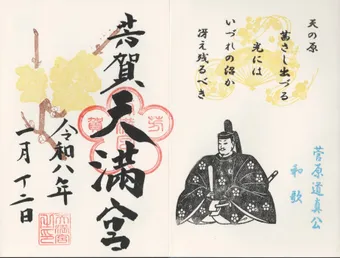 天の原
茜さし出づる
光には
いづれの沼か
冴え残るべき
菅原道真公
和歌
芳賀天満宮
令和八年
二月十二日